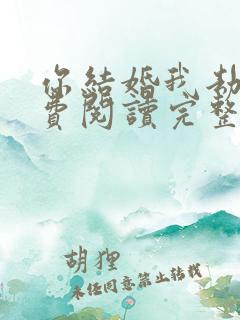 你結婚我劫
費閱讀完整
胡狸
未经同意禁止转载